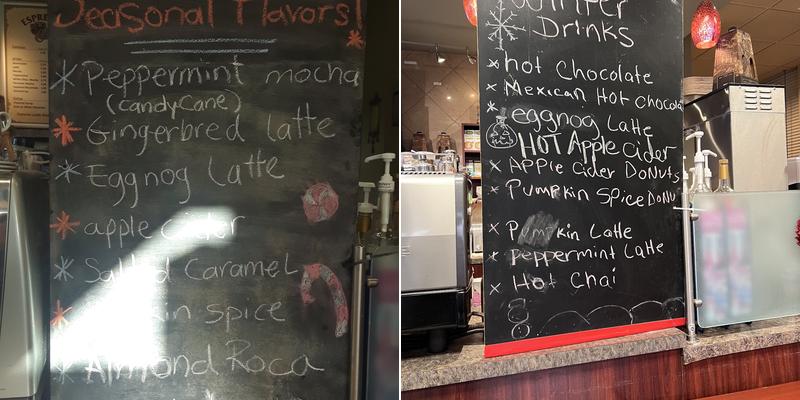 ESPRE
Seasonal Flavors!
Peppermint mocha
(candycane)
Gingerbred latte
Eggnog Latte
apple cider
Salted Caramel
kin spice
Almond Roca
Winter
Drinks
hot Chocolate
Mexican Hot chocola
eggnog Latte
HOT Apple cider
APPle Cider DoNuts
Pumpkin SpiceDoNu
Pumpkin Latte
Peppermint Latte
Hot Chai